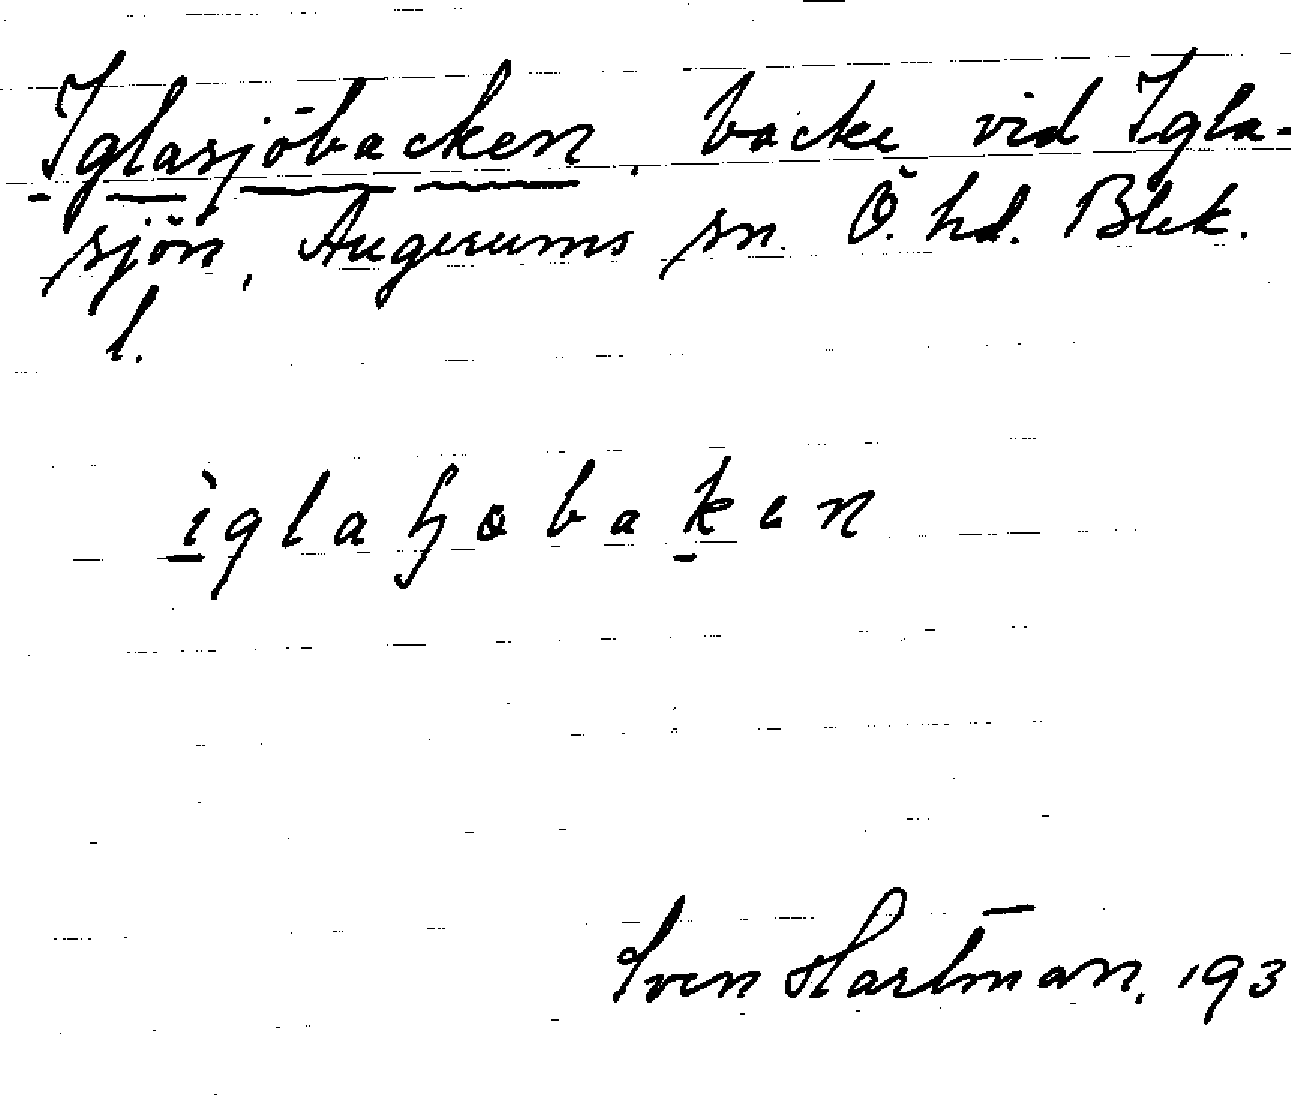 Iglasjöbacken, backe vid Igla-
sjön, Augerums sn. Ö. hd. Blek.
l.
iglaɧobaken
Sven Hartman. 193